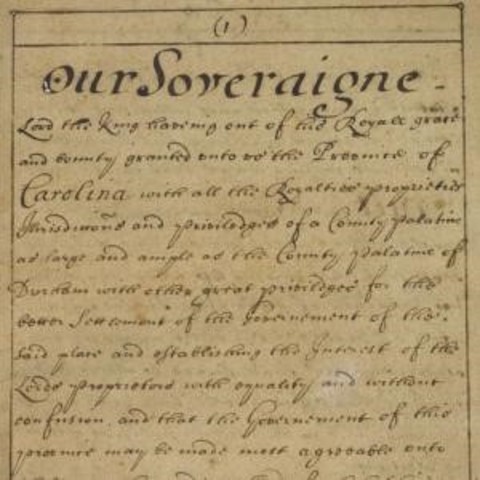 (1)
Our Soveraigne -
Lord the King haveing out of his Royall grace
and bounty granted unto us the Province of
Carolina with all the Royalties proprieties
Jurisdictions and priviledges of a County palatine
as large and ample as the County palatine of
Durham with other great priviledges for the
better Settlement of the Governement of the
said place and establishing the Interest of the
Lords proprietors with equality and without
confusion and that the Governement of this
province may be made most agreeable unto